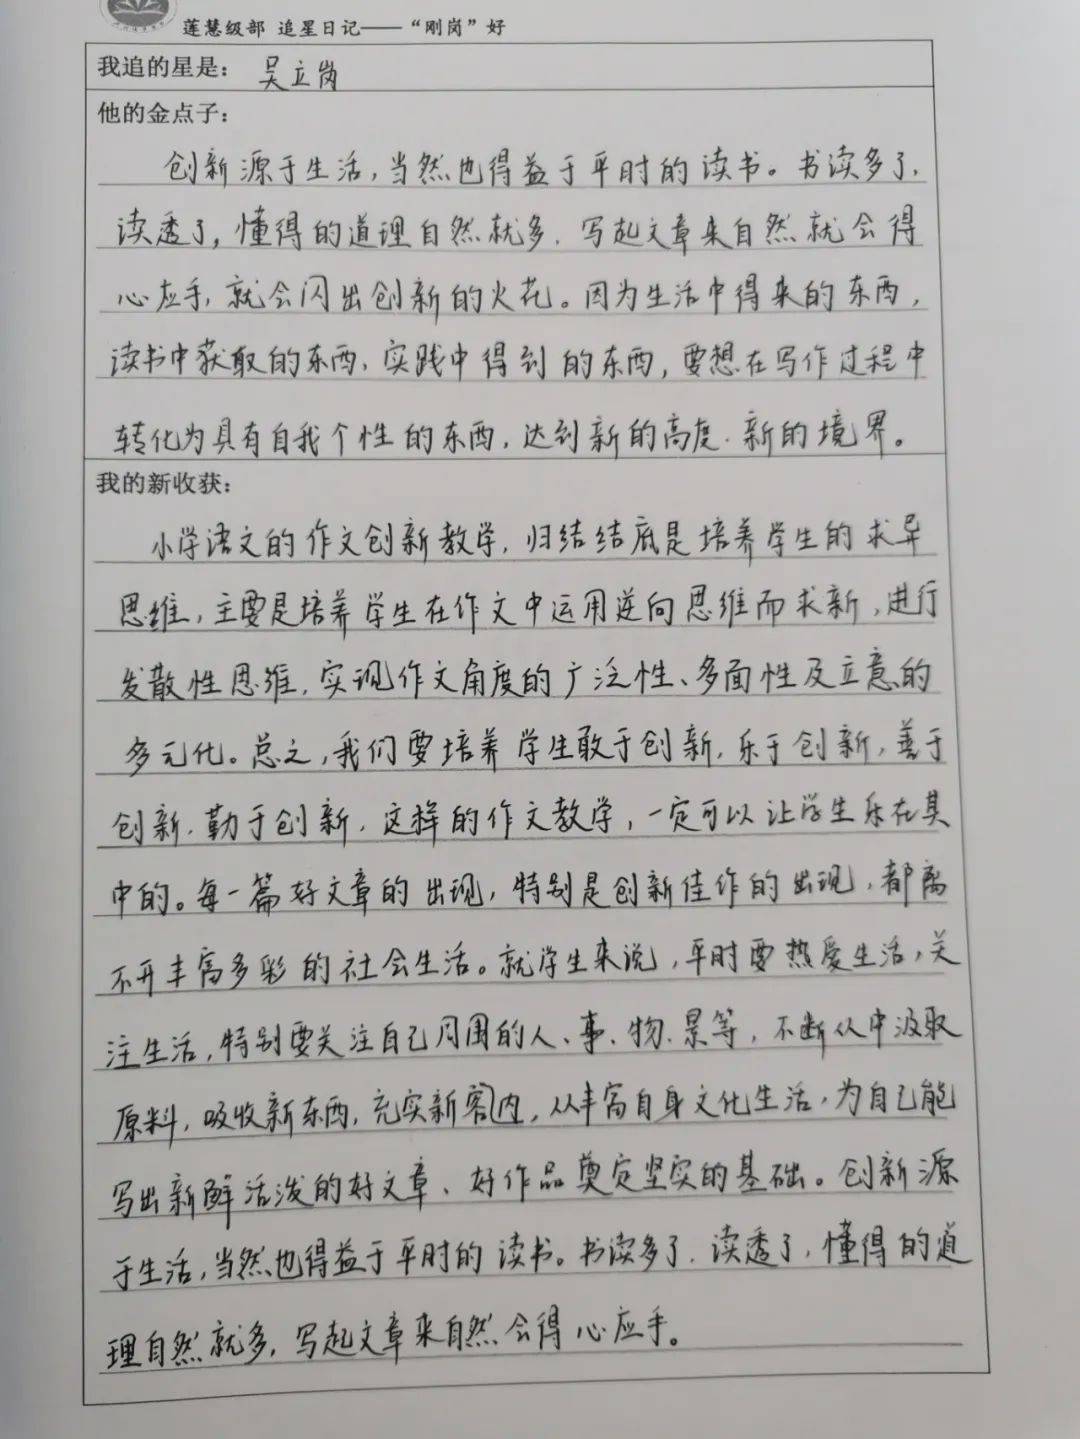 莲慧级部 追星日记——“刚岗”好
我追的星是： 吴立岗
他的金点子：
创新源于生活，当然也得益于平时的读书。书读多了，
读透了，懂得的道理自然就多，写起文章来自然就会得
心应手，就会闪出创新的火花。因为生活中得来的东西，
读书中获取的东西，实践中得到的东西，要想在写作过程中
转化为具有自我个性的东西，达到新的高度、新的境界。
我的新收获：
小学语文的作文创新教学，归结结底是培养学生的求异
思维，主要是培养学生在作文中运用逆向思维而求新，进行
发散性思维，实现作文角度的广泛性、多面性及立意的
多元化。总之，我们要培养学生敢于创新，乐于创新，善于
创新，勤于创新，这样的作文教学，一定可以让学生乐在其
中的。每一篇好文章的出现，特别是创新佳作的出现，都离
不开丰富多彩的社会生活。就学生来说，平时要热爱生活，关
注生活，特别要关注自己周围的人、事、物、景等，不断从中汲取
原料，吸收新东西，充实新客内，从丰富自身文化生活，为自己能
写出新鲜活泼的好文章、好作品奠定坚实的基础。创新源
于生活，当然也得益于平时的读书。书读多了，读透了，懂得的道
理自然就多，写起文章来自然会得心应手。